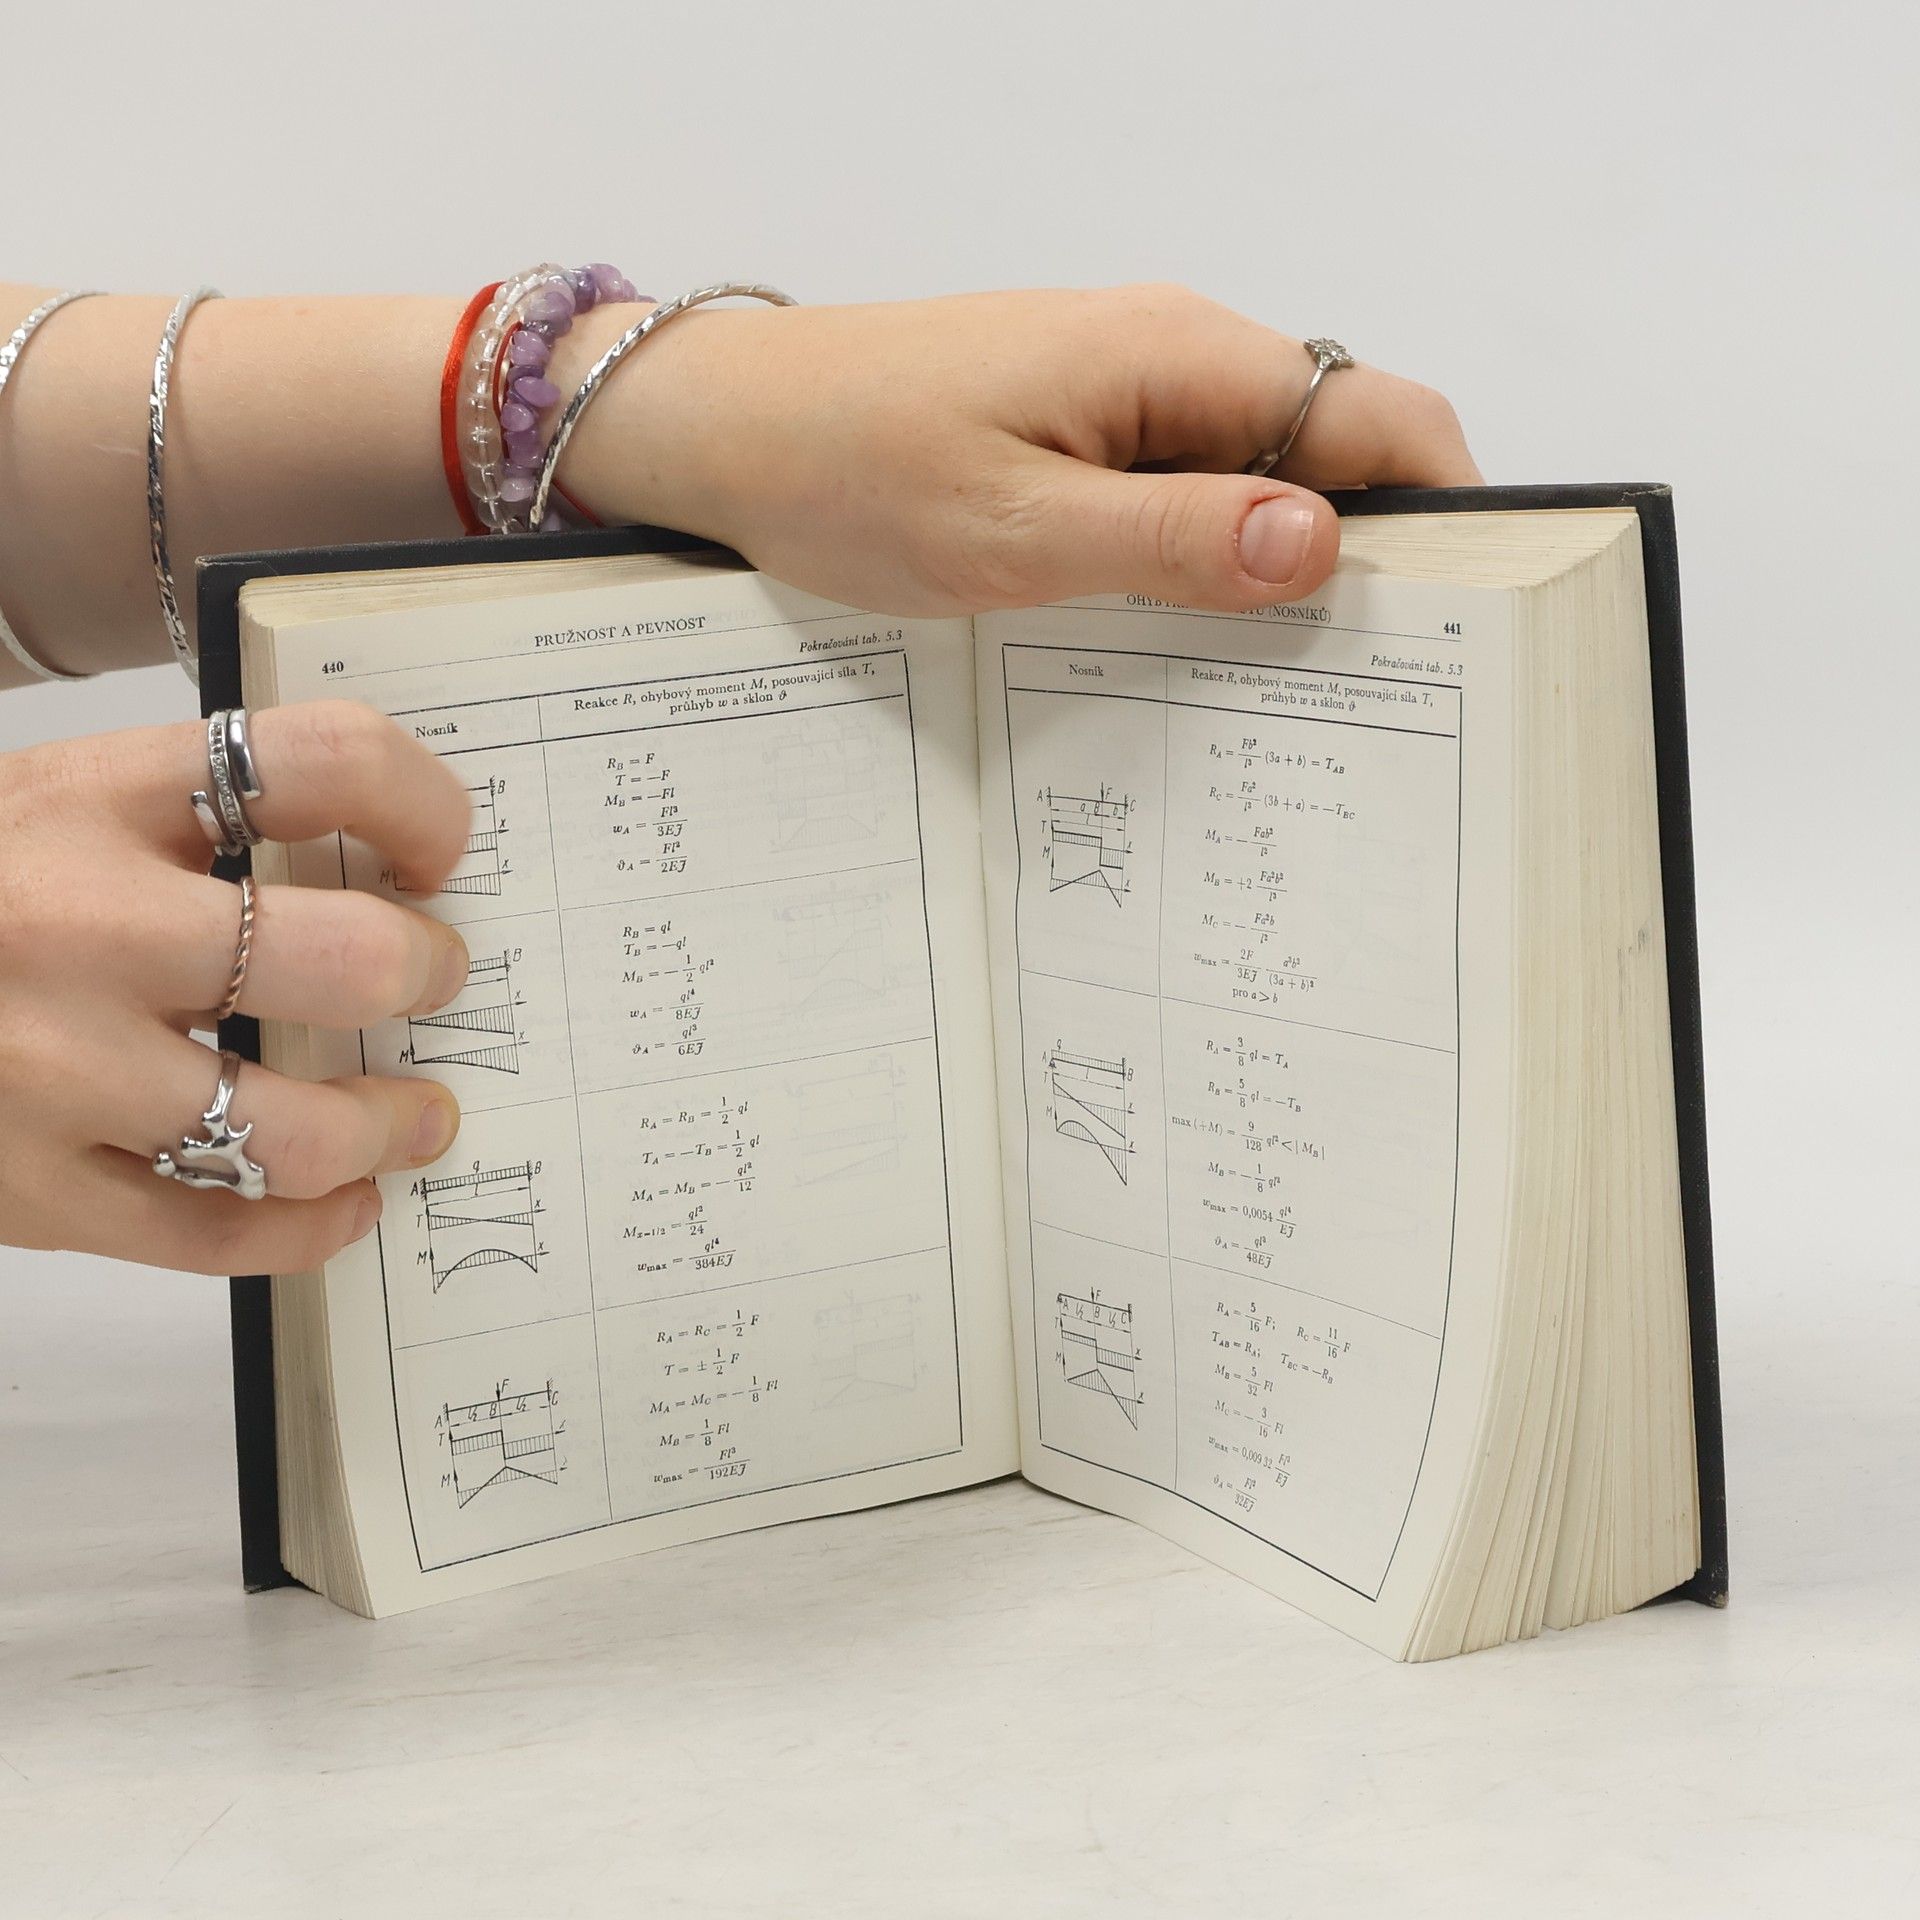 440
PRUŽNOST A PEVNOST
Pokračování tab. 5.3
Nosník
Reakce R, ohybový moment M, posouvající síla T,
průhyb w a sklon ϑ
B
x
x
M
R_B = F
T = —F
M_B = —Fl
w_A = Fl³/3EJ
ϑ_A = Fl²/2EJ
B
x
x
M
R_B = ql
T_B = —ql
M_B = — 1/2 ql²
w_A = ql⁴/8EJ
ϑ_A = ql³/6EJ
q
A B
l
T x
M x
R_A = R_B = 1/2 ql
T_A = —T_B = 1/2 ql
M_A = M_B = — ql²/12
M_x=1/2 = ql²/24
w_max = ql⁴/384EJ
F
A l/2 B l/2 C
T x
M x
R_A = R_C = 1/2 F
T = ± 1/2 F
M_A = M_C = — 1/8 Fl
M_B = 1/8 Fl
w_max = Fl³/192EJ
(NOSNÍKŮ)
441
Pokračování tab. 5.3
Nosník
Reakce R, ohybový moment M, posouvající síla T,
průhyb w a sklon ϑ
F
A a B b C
l
T x
M x
R_A = Fb²/l³ (3a + b) = T_AB
R_C = Fa²/l³ (3b + a) = —T_BC
M_A = — Fab²/l²
M_B = +2 Fa²b²/l³
M_C = — Fa²b/l²
w_max = 2F/3EJ a³b²/(3a + b)²
pro a > b
q
A B
l
T x
M x
R_A = 3/8 ql = T_A
R_B = 5/8 ql = —T_B
max (+M) = 9/128 ql² < | M_B |
M_B = — 1/8 ql²
w_max = 0,0054 ql⁴/EJ
ϑ_A = ql³/48EJ
F
A l/2 B l/2 C
T x
M x
R_A = 5/16 F; R_C = 11/16 F
T_AB = R_A; T_BC = —R_B
M_B = 5/32 Fl
M_C = — 3/16 Fl
w_max = 0,009 32 Fl³/EJ
ϑ_A = Fl²/32EJ